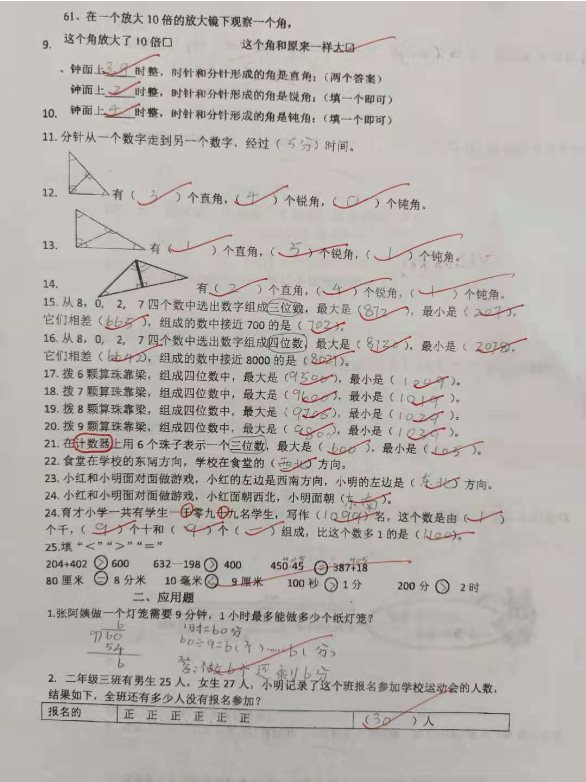 61、在一个放大 10 倍的放大镜下观察一个角,
9. 这个角放大了 10 倍□ 这个角和原来一样大□
、钟面上3,9时整，时针和分针形成的角是直角;（两个答案）
钟面上2时整，时针和分针形成的角是锐角;（填一个即可）
10. 钟面上4时整，时针和分针形成的角是钝角;（填一个即可）
11. 分针从一个数字走到另一个数字，经过（5分）时间。
12. 有（3）个直角,（4）个锐角,（0）个钝角。
13. 有（1）个直角,（5）个锐角,（1）个钝角。
14. 有（2）个直角,（4）个锐角,（1）个钝角。
15. 从 8，0，2，7 四个数中选出数字组成三位数，最大是（872），最小是（207），
它们相差（665），组成的数中接近 700 的是（702）。
16. 从 8，0，2，7 四个数中选出数字组成四位数，最大是（8720），最小是（2078），
它们相差（6642），组成的数中接近 8000 的是（8027）。
17. 拨 5 颗算珠靠梁，组成四位数中，最大是（9500），最小是（1009）。
18. 拨 7 颗算珠靠梁，组成四位数中，最大是（9600），最小是（1019）。
19. 拨 8 颗算珠靠梁，组成四位数中，最大是（9700），最小是（1029）。
20. 拨 9 颗算珠靠梁，组成四位数中，最大是（9800），最小是（1039）。
21. 在计数器上用 6 个珠子表示一个三位数，最大是（600），最小是（105）。
22. 食堂在学校的东南方向，学校在食堂的（西北）方向。
23. 小红和小明面对面做游戏，小红的左边是西南方向，小明的左边是（东北）方向。
24. 小红和小明面对面做游戏，小红面朝西北，小明面朝（东南）。
24. 育才小学一共有学生一千零九十九名学生，写作（1099）名，这个数是由（1）
个千,（9）个十和（9）个（一）组成，比这个数多 1 的是（1100）。
25. 填 “<”“>”“=”
204+402 > 600 632—198 > 400 450-45 = 387+18
80 厘米 = 8 分米 10 毫米 < 9 厘米 100 秒 > 1 分 200 分 > 2 时
二、应用题
1.张阿姨做一个灯笼需要 9 分钟，1 小时最多能做多少个纸灯笼?
1时=60分
60÷9=6(个)……6(分)
答:做6个还剩6分
6
9)60
54
6
2. 二年级三班有男生 25 人，女生 27 人，小明记录了这个班报名参加学校运动会的人数，
结果如下，全班还有多少人没有报名参加?
报名的 正 正 正 正 正 正 （30）人